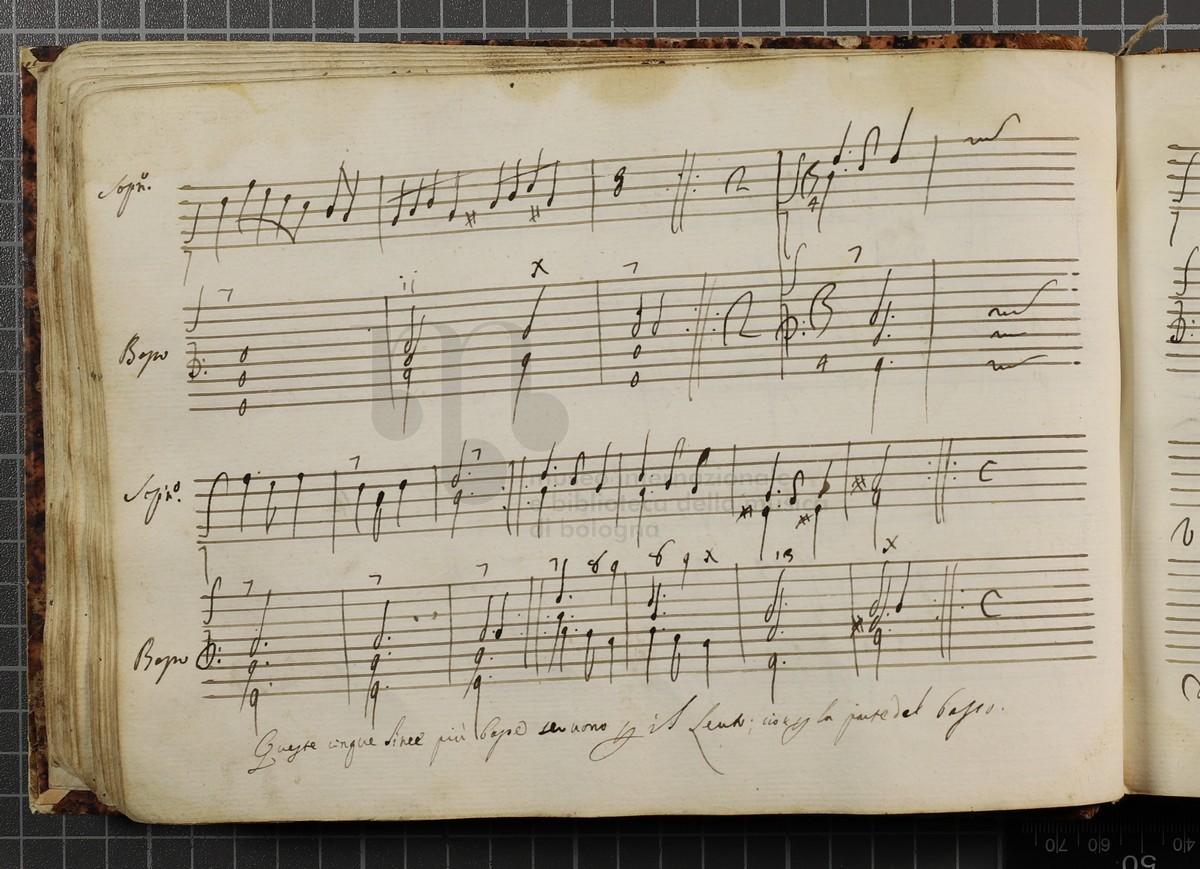 Sopno.
7
ii
X
7
7
Basso
7
7
Sopno.
7
7
7
7 8 9
8 9 X
13
X
Basso
Queste cinque linee più basse servono il Leuto; cioè la parte del basso.
museo internazionale
e biblioteca della musica
di bologna
70 60 50 40